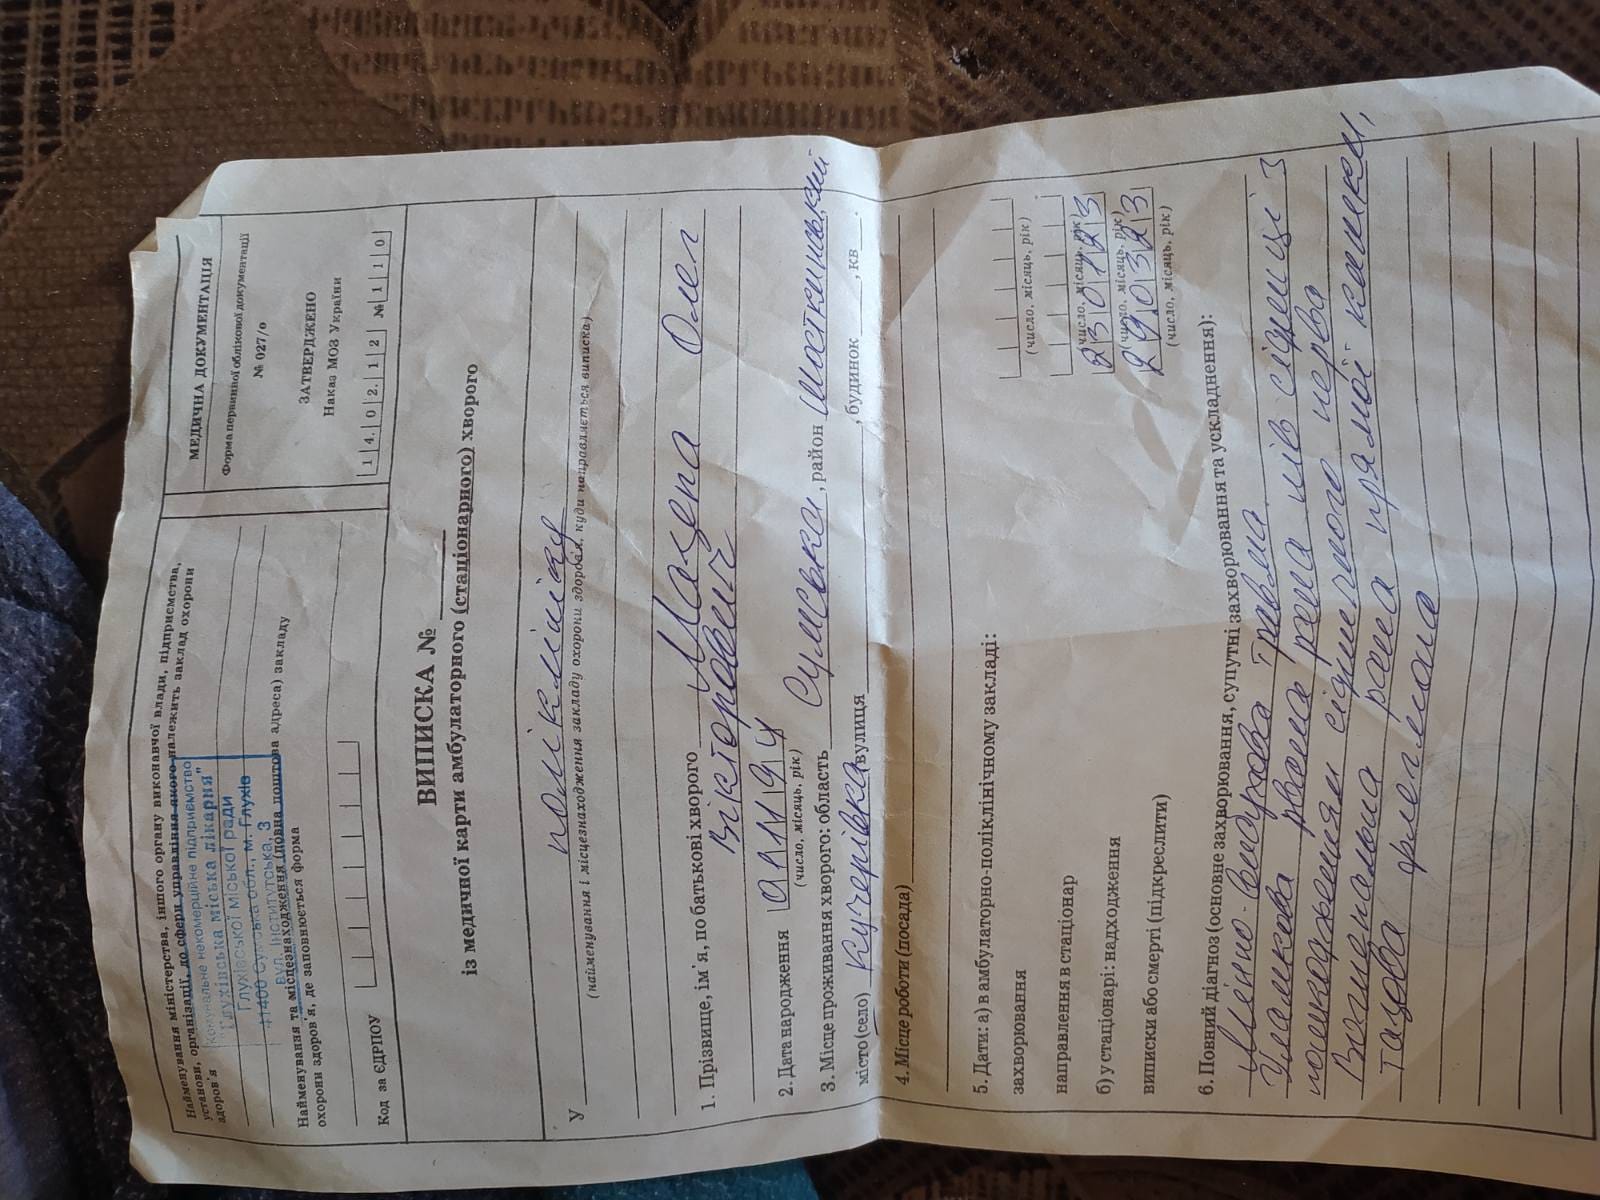 Найменування міністерства, іншого органу виконавчої влади, підприємства,
установи, організації, до сфери управління якого належить заклад охорони
здоров'я
комунальне некомерційне підприємство
"Глухівська міська лікарня"
Глухівської міської ради
41400 Сумська обл., м. Глухів
вул. Інститутська, 3
Найменування та місцезнаходження (повна поштова адреса) закладу
охорони здоров'я, де заповнюється форма
Код за ЄДРПОУ
МЕДИЧНА ДОКУМЕНТАЦІЯ
Форма первинної облікової документації
№ 027/о
ЗАТВЕРДЖЕНО
Наказ МОЗ України
14.02.12 № 110
ВИПИСКА №
із медичної карти амбулаторного (стаціонарного) хворого
У поліклініку
(найменування і місцезнаходження закладу охорони здоров'я, куди направляється виписка)
1. Прізвище, ім'я, по батькові хворого Мазепа Олег
Вікторович
2. Дата народження
(число, місяць, рік)
3. Місце проживання хворого: область Сумська, район Шосткинський
місто (село) Кучерівка вулиця , будинок , кв .
4. Місце роботи (посада)
5. Дати: а) в амбулаторно-поліклінічному закладі:
захворювання
(число, місяць, рік)
направлення в стаціонар
(число, місяць, рік)
б) у стаціонарі: надходження 230123
(число, місяць, рік)
виписки або смерті (підкреслити) 290323
(число, місяць, рік)
6. Повний діагноз (основне захворювання, супутні захворювання та ускладнення):
Мінно-вибухова травма
Уламкова рвана рана лів сідниці з
пошкодженням сідничного нерва
Вогнепальна рана прямої кишки,
тазова флегмона